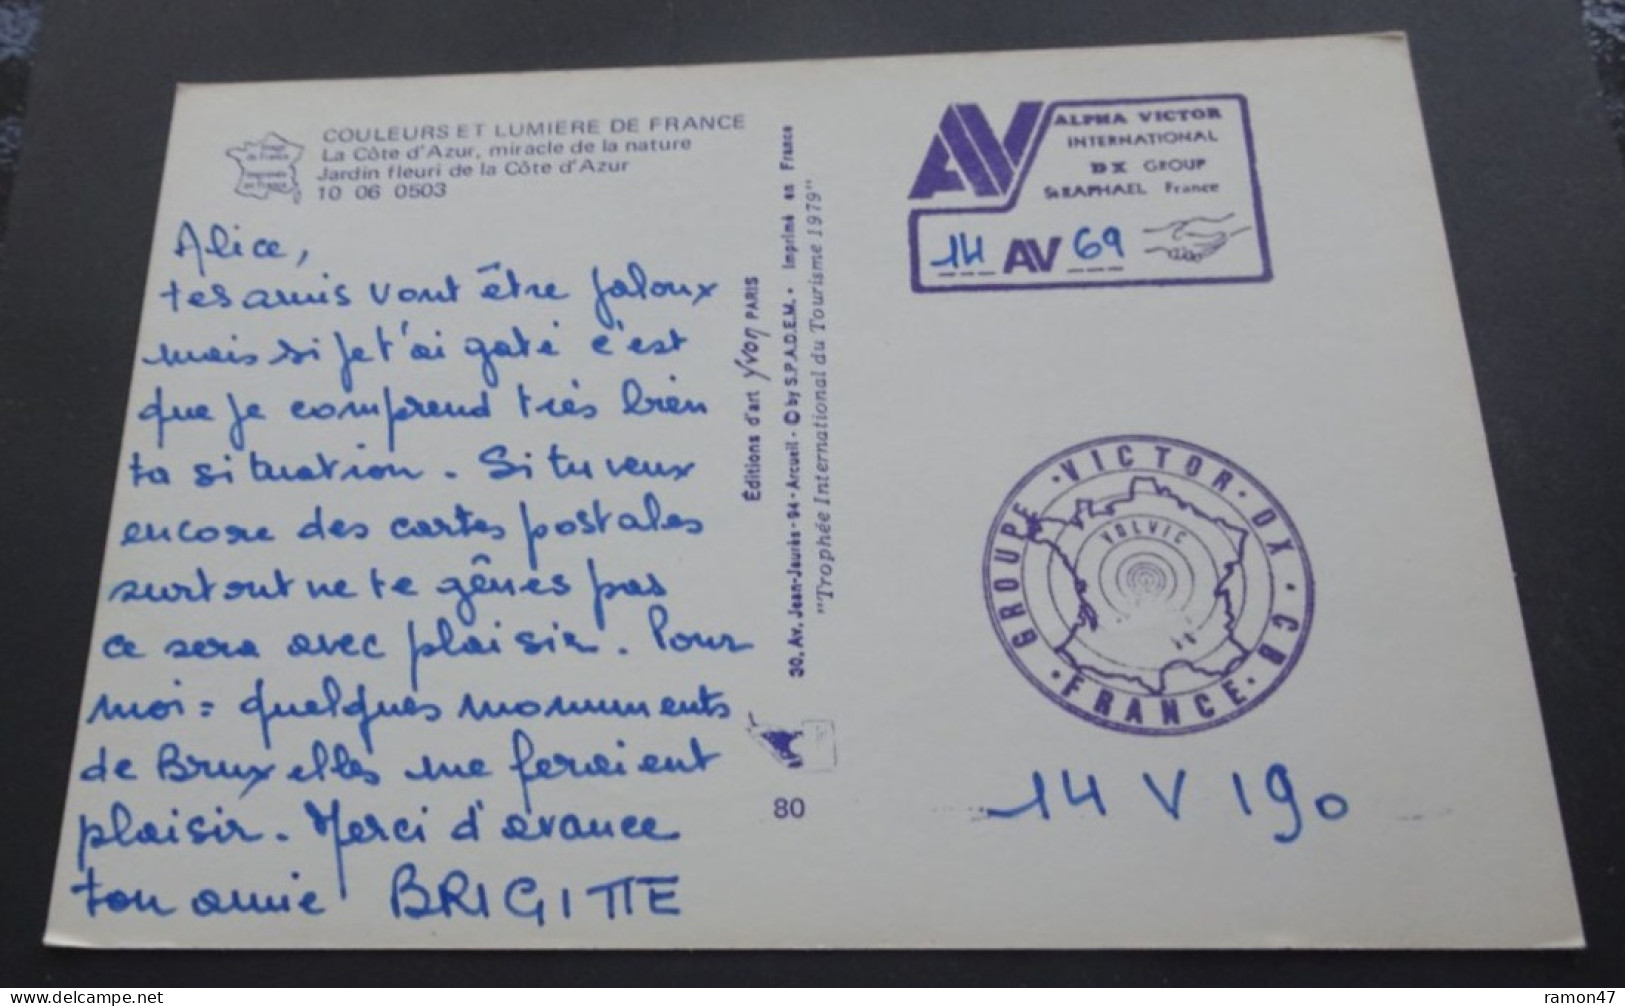 COULEURS ET LUMIERE DE FRANCE
La Côte d'Azur, miracle de la nature
Jardin fleuri de la Côte d'Azur
10 06 0503
Alice,
tes amis vont être jaloux
mais si je t'ai gaté c'est
que je comprend très bien
ta situation. Si tu veux
encore des cartes postales
surtout ne te gênes pas
ce sera avec plaisir. Pour
moi = quelques monuments
de Bruxelles me feraient
plaisir. Merci d'avance
ton amie BRIGITTE
Éditions d'art Yvon PARIS
30, Av. Jean-Jaurès - 94 - Arcueil - © by S.P.A.D.E.M. - Imprimé en France
"Trophée International du Tourisme 1979"
80
AV
ALPHA VICTOR
INTERNATIONAL
DX GROUP
St RAPHAEL France
14 AV 69
GROUPE · VICTOR · DX · CB · FRANCE ·
VOLVIC
14 V 190
ramon47